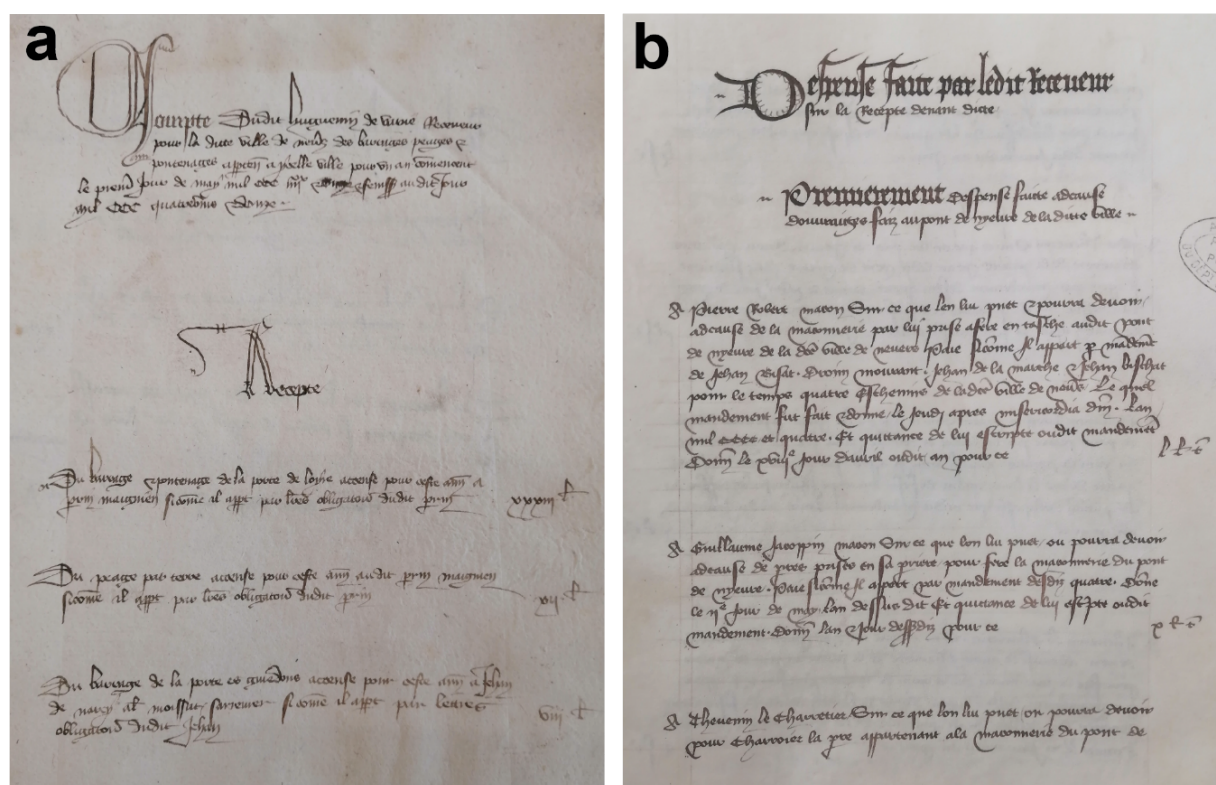 a
Compte Dudit huguenin de vaine Receveur
pour la dicte ville de nevers des barrages peages &
pontenages apparten a ycelle ville pour un an comencent
le premier Jour de may mil CCC iiii feniss audit Jour
mil CCC quatrevins &
Recepte
Du barrage & pontenage de la porte de loire accense pour ceste ann a
perrin maugmen sicome il appt par lres obligatoires dudit perrin
xxxiii £
Du peage par terre accense pour ceste ann audit perrin maugmen
sicome il appt par lres obligatoires dudit perrin
xii £
Du barrage de la porte es accense pour ceste ann a Jehan
de narcy al moissat sicome il appt par lectres
obligatoires dudit Jehan
viii £
b
Despense faite par ledit Receveur
sur la Recepte devant dicte
Premierement despense faicte acause
douvraiges faiz au pont de nyevre de la dicte ville
A Pierre Robert macon Sur ce que len lui puet & pourra devoir
acause de la maconnerie par lui prise afere en tasche audit pont
de nyevre de la dce ville de nevers Paie sicome Il appert p mandemt
de Jehan Droin mourant Jehan de la marche & Jehan bischat
pour le temps quatre Eschevins de la dce ville de nevrs Le quel
mandement fut fait & donne le Joudi apres misericordia dm. Lan
mil CCCC et quatre. Et quittance de lui escripte oudit mandemt
Donn le xviiie Jour davril oudit an pour ce
l £ t
A Guillaume Jacoppin macon Sur ce que lon lui puet ou pourra devoir
acause de pret pour fere la maconnerie du pont
de nyevre. Paie sicome Il appert par mandement desdiz quatre. Done
le iie Jour de may lan dessus dit Et quittance de lui escpte oudit
mandement. donn lan & Jour dessusdiz pour ce
x £ t
A Thevenin le Charretier Sur ce que lon lui puet ou pourra devoir
pour Charroier la pre appartenant ala maconnerie du pont de